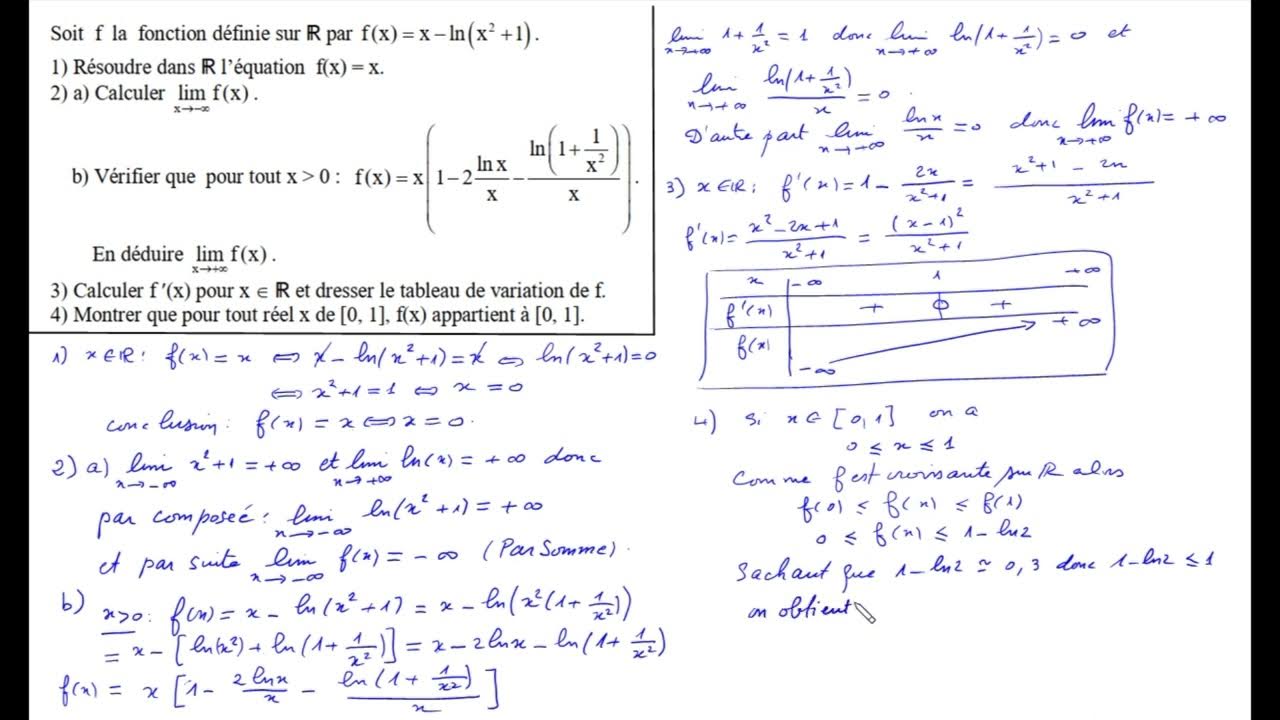 Soit f la fonction définie sur ℝ par f(x) = x − ln(x² + 1).
1) Résoudre dans ℝ l'équation f(x) = x.
2) a) Calculer lim_{x→−∞} f(x).
b) Vérifier que pour tout x > 0 : f(x) = x(1 − 2 (ln x)/x − ln(1 + 1/x²)/x).
En déduire lim_{x→+∞} f(x).
3) Calculer f ′(x) pour x ∈ ℝ et dresser le tableau de variation de f.
4) Montrer que pour tout réel x de [0, 1], f(x) appartient à [0, 1].
1) x ∈ ℝ : f(x) = x ⇔ x − ln(x² + 1) = x ⇔ ln(x² + 1) = 0
⇔ x² + 1 = 1 ⇔ x = 0
conclusion : f(x) = x ⇔ x = 0.
2) a) lim_{x→−∞} x² + 1 = +∞ et lim_{x→+∞} ln(x) = +∞ donc
par composeé : lim_{x→−∞} ln(x² + 1) = +∞
et par suite lim_{x→−∞} f(x) = −∞ (Par Somme).
b) x>0 : f(x) = x − ln(x² + 1) = x − ln(x²(1 + 1/x²))
= x − [ln(x²) + ln(1 + 1/x²)] = x − 2lnx − ln(1 + 1/x²)
f(x) = x [1 − 2lnx/x − ln(1 + 1/x²)/x]
lim_{x→+∞} 1 + 1/x² = 1 donc lim_{x→+∞} ln(1 + 1/x²) = 0 et
lim_{x→+∞} ln(1 + 1/x²)/x = 0.
D'autre part lim_{x→+∞} lnx/x = 0 donc lim_{x→+∞} f(x) = +∞
3) x ∈ ℝ : f'(x) = 1 − 2x/(x²+1) = (x²+1 − 2x)/(x²+1)
f'(x) = (x² − 2x + 1)/(x²+1) = (x−1)²/(x²+1)
x −∞ 1 +∞
f'(x) + 0 +
f(x) −∞ +∞
4) Si x ∈ [0,1] on a
0 ≤ x ≤ 1
Comme f est croissante sur ℝ alors
f(0) ≤ f(x) ≤ f(1)
0 ≤ f(x) ≤ 1 − ln2
Sachant que 1 − ln2 ≃ 0,3 donc 1 − ln2 ≤ 1
on obtient